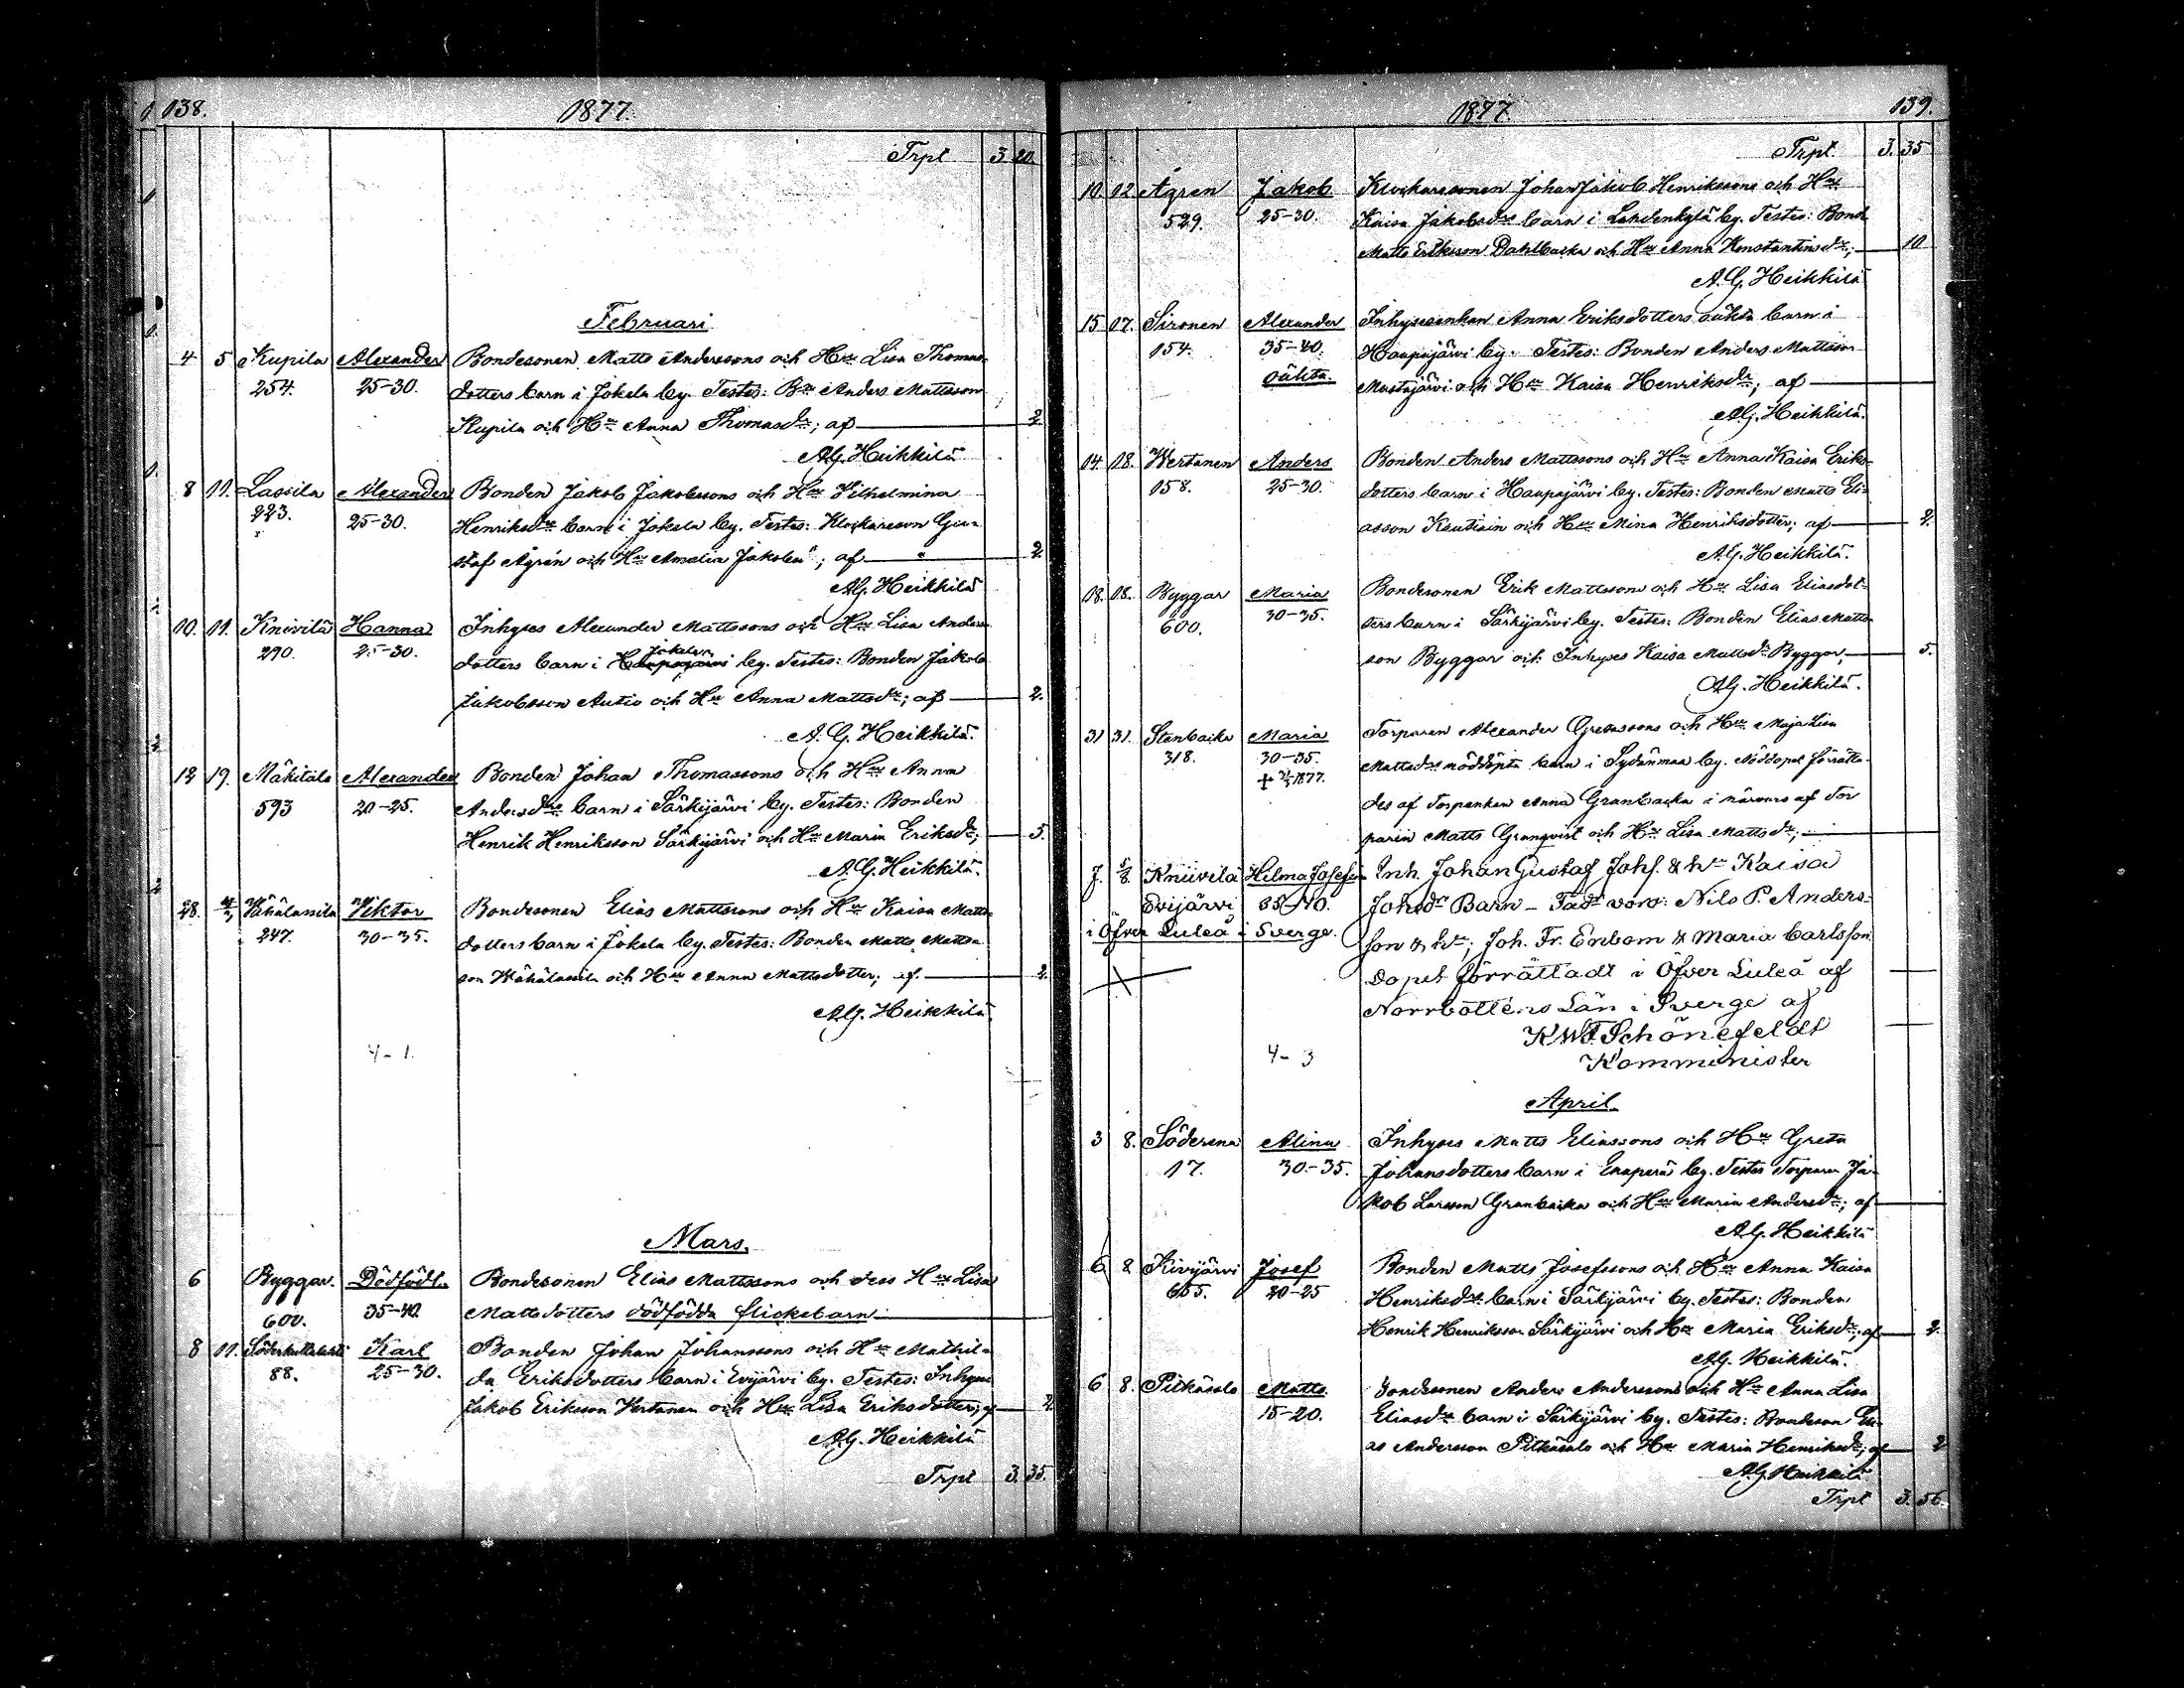 138.
1877.
Trpt 3. 20.
Februari
4 5 Kupila Alexander Bondesonen Matts Anderssons och Hu Lisa Thomas-
254. 25-30. dotters barn i Jokela by. Testes: Bn Anders Mattsson
Kupila och Hu Anna Thomasdr; af 2.
A.G. Heikkilä
8 11. Lassila Alexander Bonden Jakob Jakobssons och Hu Vilhelmina
223. 25-30. Henriksdrs barn i Jokela by. Testes: Klockareson Gu-
staf Ågrén och Hu Amalia ; af 2.
A.G. Heikkilä
10. 11. Knivilä Hanna Inhyses Alexander Mattssons och Hu Lisa Anders-
290. 25-30. dotters barn i Haapajärvi Jokela by. Testes: Bonden Jakob
Jakobsson Autio och Hu Anna Mattsdr; af 2.
A.G. Heikkilä.
12 19. Mäkitalo Alexander Bonden Johan Thomassons och Hu Anna
593 20-25. Andersdrs barn i Särkijärvi by. Testes: Bonden
Henrik Henriksson Särkijärvi och Hu Maria Eriksdr; 5.
A.G. Heikkilä.
28. Vähälassila Viktor Bondesonen Elias Mattssons och Hu Kaisa Matts-
247. 30-35. dotters barn i Jokela by. Testes: Bonden Matts Matts-
son Wähälassila och Hu Anna Mattsdotter; af 2.
A.G. Heikkilä.
4-1.
Mars.
6 Byggar. Dödfödt. Bondesonen Elias Mattssons och dess Hu Lisa
600. 35-40. Mattsdotters dödfödda flickebarn
8 11. Karl Bonden Johan Johanssons och Hu Mathil-
88. 25-30. da Eriksdotters barn i Evijärvi by. Testes: Inhyses
Jakob Eriksson Vertanen och Hu Lisa Eriksdotter; af 2
A.G. Heikkilä
Trpt 3. 35.
1877.
139.
Trpt. 3. 35
10. 12 Ågren Jakob Klockaresonen Johan Jakob Henrikssons och Hus
529. 25-30. Kaisa Jakobsdrs barn i Lahdenkylä by. Testes: Bond.
Matts Eriksson Dahlbacka och Hu Anna Konstantinsdr; 10
A.G. Heikkilä
15. 17. Sironen Alexander Inhysesenkan Anna Eriksdotters oäkta barn i
154. 35-40. Haapajärvi by. Testes: Bonden Anders Mattsson
oäkta. Mustajärvi och Hu Kaisa Henriksdr; af
A.G. Heikkilä.
14 18. Wertanen Anders Bonden Anders Mattssons och Hu Anna Kaisa Eriks-
158. 25-30. dotters barn i Haapajärvi by. Testes: Bonden Matts Eli-
asson Kautiain och Hu Mina Henriksdotter; af 2.
A.G. Heikkilä.
18. 18. Byggar Maria Bondesonen Erik Mattssons och Hu Lisa Eliasdot-
600. 30-35. ters barn i Särkijärvi by. Testes: Bonden Elias Matts-
son Byggar och Inhyses Kaisa Mattsdr Byggar; 5.
A.G. Heikkilä.
31 31. Stenbacka Maria Torparen Alexander Gretassons och Hu Maja Lisa
318. 30-35. Mattsdrs nöddöpta barn i Sydänmaa by. Nöddopet förrätta-
1877. des af Torpenkan Anna Granbacka i närvaro af Tor
paren Matts Granqvist och Hu Lisa Mattsdr;
7. 8. Kniivilä Hilma Josefin Inh. Johan Gustaf Johs. & hu Kaisa
Evijärvi 35-40. Johsdr Barn - Faddr voro: Nils P. Anders-
i Öfver Luleå i Sverge. son & hu; Joh. Fr. Enbom & Maria Carlsson
Dopet förrättadt i Öfver Luleå af
Norrbottens Län i Sverge af
Schönefeldt
4-3 Komminister
April.
3 8. Söderena Alina Inhyses Matts Eliassons och Hu Greta
17. 30-35. Johansdotters barn i Enaperä by. Testes Torparen Ja-
kob Larsson Granbacka och Hu Maria Andersdr; af
A.G. Heikkilä
6 8 Kivijärvi Josef Bonden Matts Josefssons och Hu Anna Kaisa
20-25 Henriksdrs barn i Särkijärvi by. Testes: Bonden
Henrik Henriksson Särkijärvi och Hu Maria Eriksdr; af 2.
A.G. Heikkilä.
6 8. Pitkäsalo Matts Bondesonen Anders Anderssons och Hu Anna Lisa
15-20. Eliasdrs barn i Särkijärvi by. Testes: Bondeson Eli-
as Andersson Pitkäsalo och Hu Maria Henriksdr; af 2
A.G. Heikkilä
Trpt 3. 56.